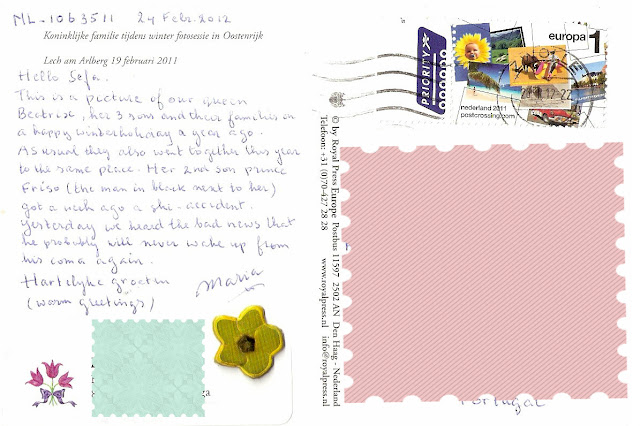 NL-1063511 24 Febr. 2012
Koninklijke familie tijdens winter fotosessie in Oostenrijk
Lech am Arlberg 19 februari 2011
Hello Sefa.
This is a picture of our queen
Beatrise, her 3 sons and their families on
a happy winterholiday a year ago.
As usual they also went together this year
to the same place. Her 2nd son prince
Friso (the man in black next to her)
got a week ago a ski-accident.
Yesterday we heard the bad news that
he probably will never wake up from
his coma again.
Hartelijke groeten
(warm greetings)
Maria
© by Royal Press Europe Postbus 11597 2502 AN Den Haag - Nederland
Telefoon: +31 (0)70-427 28 28 www.royalpress.nl info@royalpress.nl
PRIORITY
europa 1
nederland 2011
postcrossing.com
Portugal